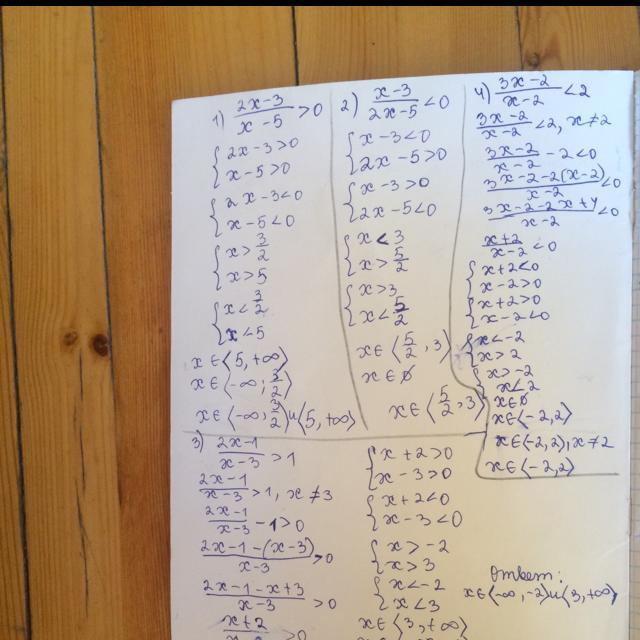 1) (2x-3)/(x-5) > 0
{ 2x-3>0
x-5>0
{ 2x-3<0
x-5<0
{ x > 3/2
x > 5
{ x < 3/2
x < 5
x∈⟨5,+∞⟩
x∈⟨-∞; 3/2⟩
x∈⟨-∞; 3/2⟩∪⟨5,+∞⟩
2) (x-3)/(2x-5) < 0
{ x-3<0
2x-5>0
{ x-3>0
2x-5<0
{ x < 3
x > 5/2
{ x>3
x < 5/2
x∈⟨5/2, 3⟩
x∈∅
x∈⟨5/2, 3⟩
4) (3x-2)/(x-2) < 2
(3x-2)/(x-2) < 2, x≠2
(3x-2)/(x-2) - 2<0
(3x-2-2(x-2))/(x-2) < 0
(3x-2-2x+4)/(x-2) < 0
(x+2)/(x-2) < 0
{ x+2<0
x-2>0
{ x+2>0
x-2<0
{ x<-2
x>2
{ x>-2
x<2
x∈∅
x∈⟨-2,2⟩
x∈⟨-2,2⟩, x≠2
x∈⟨-2,2⟩
3) (2x-1)/(x-3) > 1
(2x-1)/(x-3) > 1, x≠3
(2x-1)/(x-3) - 1>0
(2x-1-(x-3))/(x-3) > 0
(2x-1-x+3)/(x-3) > 0
x+2
> 0
{ x+2>0
x-3>0
{ x+2<0
x-3<0
{ x>-2
x>3
{ x<-2
x<3
x∈⟨3,+∞⟩
Ответ:
x∈⟨-∞,-2⟩∪⟨3,+∞⟩